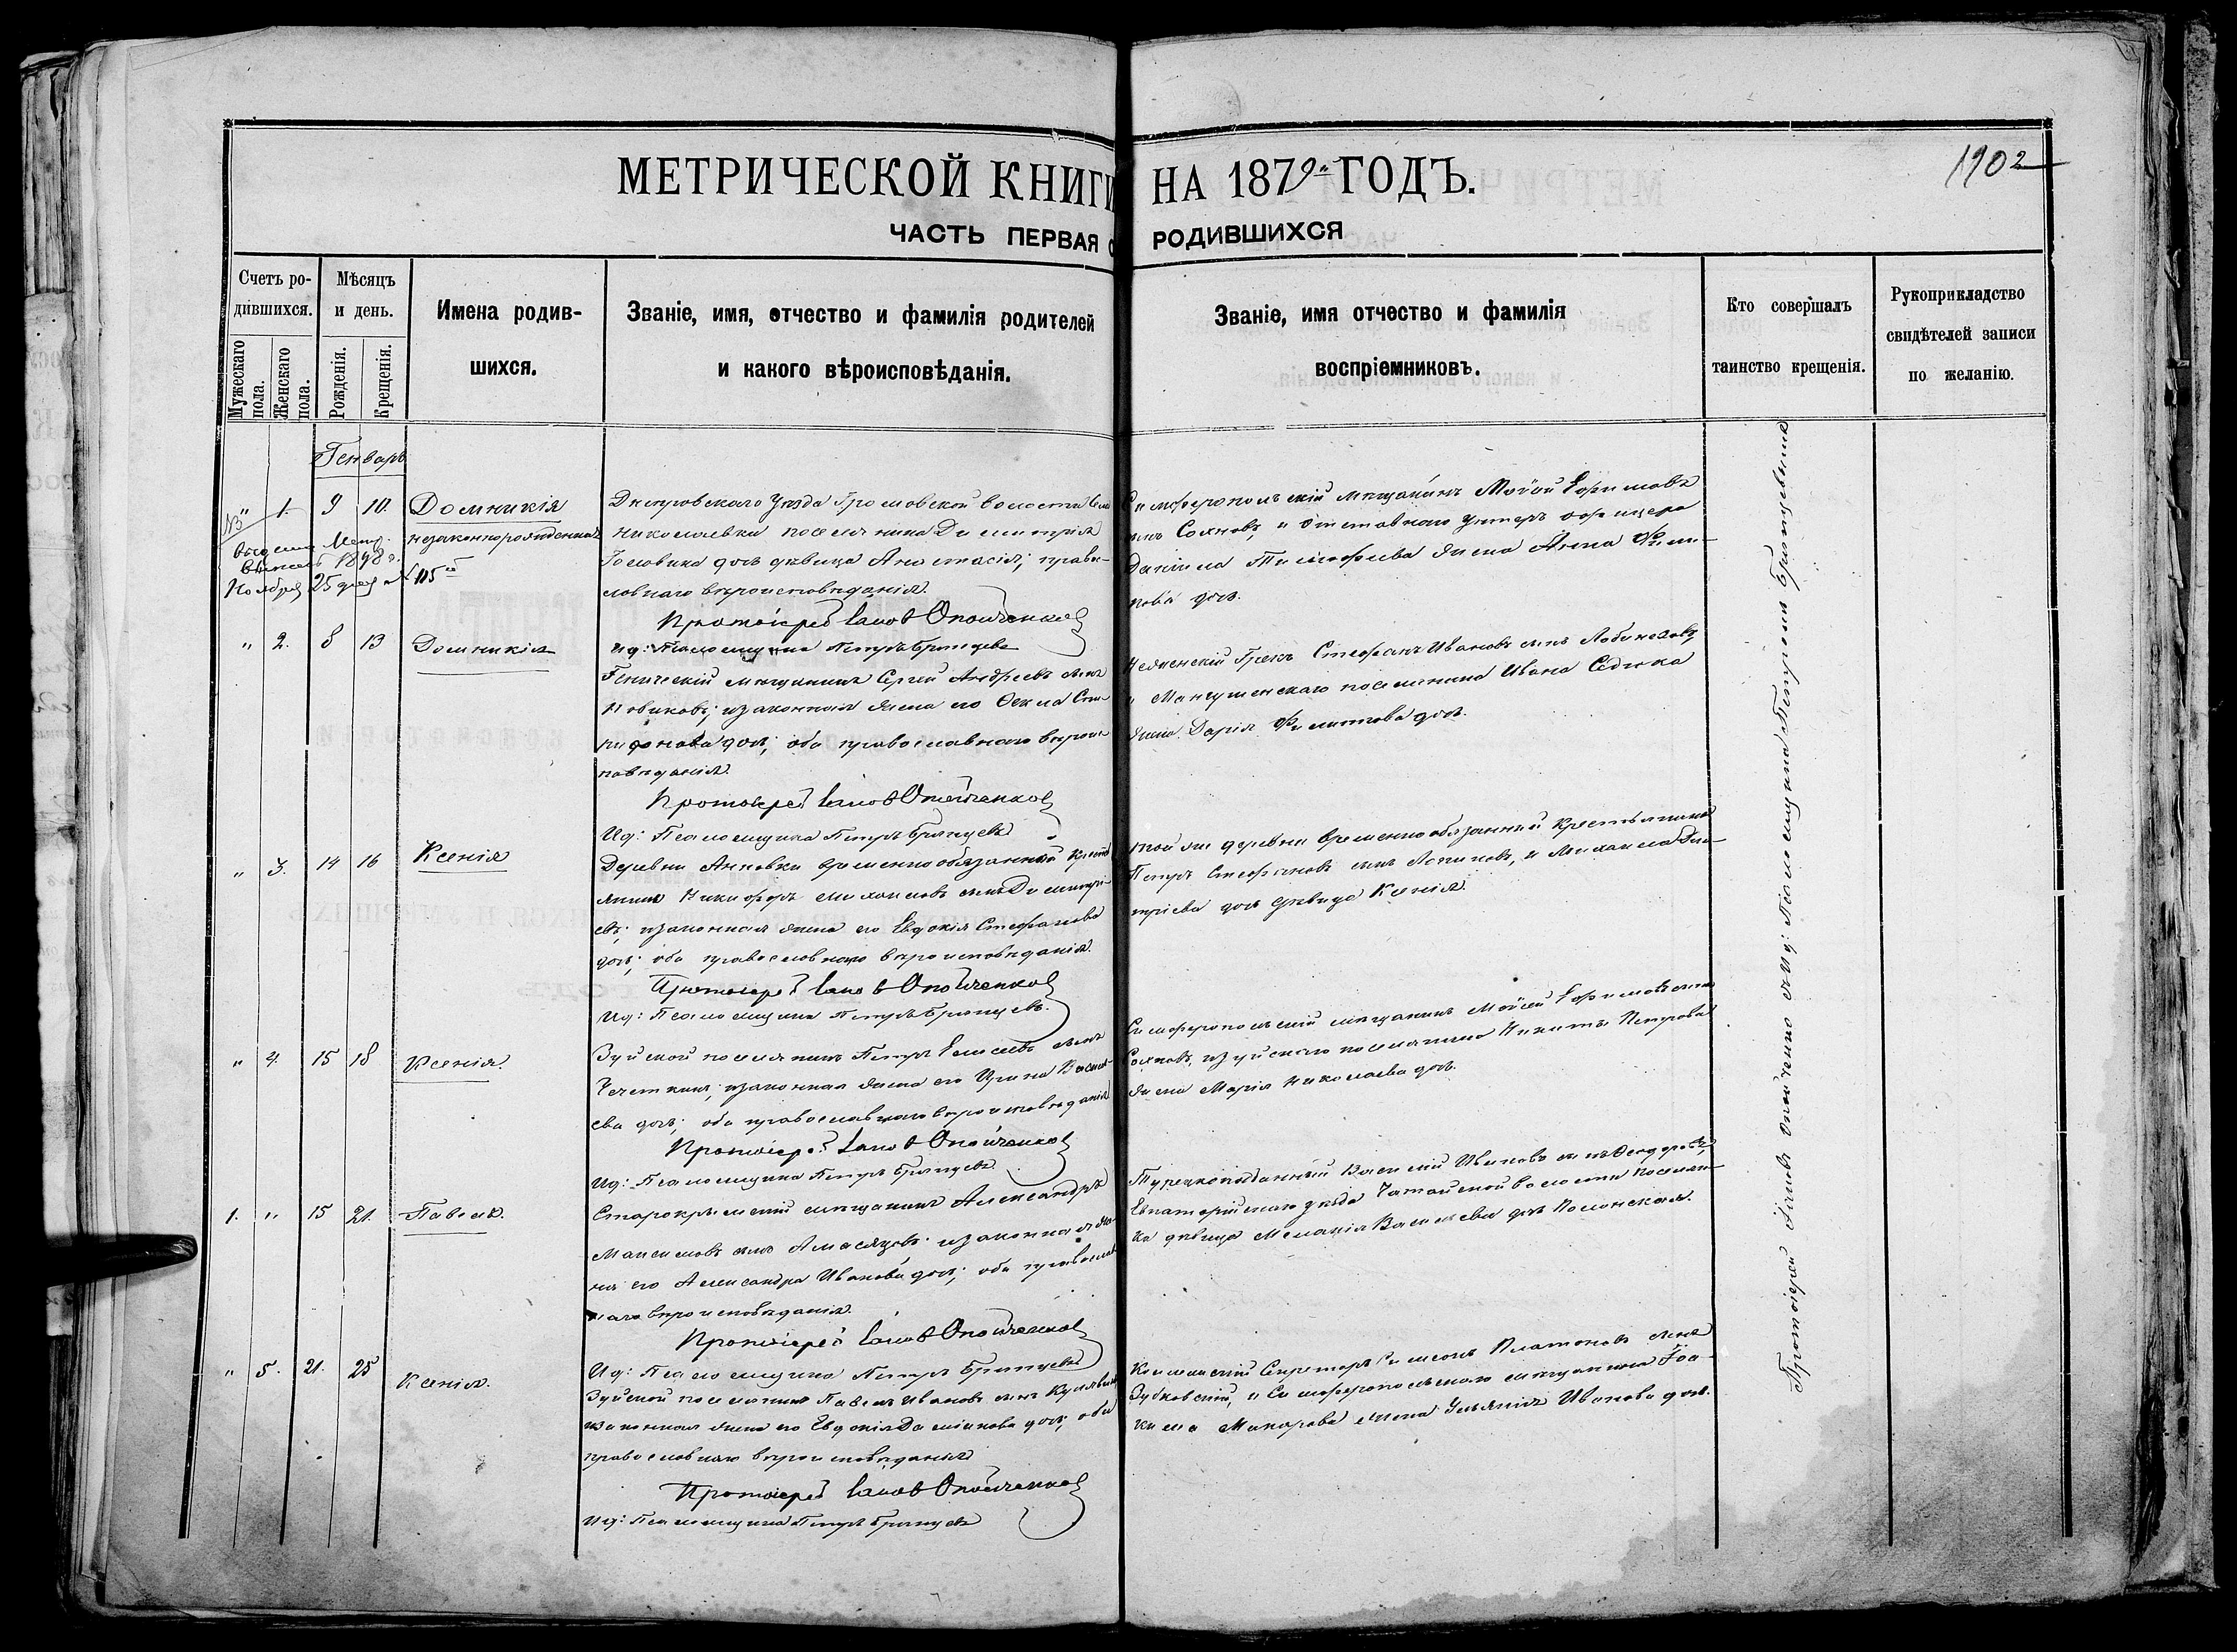 МЕТРИЧЕСКОЙ КНИГИ НА 1879й ГОДЪ.
1902
ЧАСТЬ ПЕРВАЯ О РОДИВШИХСЯ
Счетъ родившихся.
Мужескаго пола.
Женскаго пола.
Мѣсяцъ и день.
Рожденія.
Крещенія.
Имена родившихся.
Званіе, имя, отчество и фамилія родителей
и какого вѣроисповѣданія.
Званіе, имя отчество и фамилія
воспріемниковъ.
Кто совершалъ
таинство крещенія.
Рукоприкладство
свидѣтелей записи
по желанію.
Генварь
" 1. 9 10. Домникія
незаконнорожденная
1898 г.
Ноября 25 дня № 115
Днепровскаго Уѣзда Громовской волости
Николаевки поселянина Димитрія
Головина дочь дѣвица Анастасія; право-
славнаго вѣроисповѣданія.
Протоіерей Іаковъ Опойченко
Ид: Псаломщика Петръ Брянцевъ
Симферопольскій мѣщанинъ Моѵсей Ефимовъ
сынъ Солновъ, и отставнаго Унтеръ офицера
Даніила Тимофеева жена Анна Фили-
пова дочь.
" 2. 8 13 Домникія
Геническій мѣщанинъ Сергей Андреевъ сынъ
Новиковъ; и законная жена его Фекла Спи-
ридонова дочь; оба православнаго вѣроис-
повѣданія.
Протоіерей Іаковъ Опойченко
Ид: Псаломщика Петръ Брянцевъ
Нежинскій Грекъ Стефанъ Ивановъ сынъ
и Мангушенскаго поселянина Ивана Седика
жена Дарія Филипова дочь.
" 3. 14 16 Ксенія
Деревни Анновки временнообязанный крест-
янинъ Никифоръ Михаиловъ сынъ Димитрі-
евъ; и законная жена его Евдокія Стефанова
дочь; оба православнаго вѣроисповѣданія.
Протоіерей Іаковъ Опойченко
Ид: Псаломщика Петръ Брянцевъ.
той же деревни временнообязанный крестьянинъ
Петръ Стефановъ сынъ Лапиновъ, и Михаила Дми-
тріева дочь дѣвица Ксенія.
" 4. 15 18 Ксенія.
Зуйской поселянинъ Петръ Елисеевъ сынъ
Чечеткинъ; и законная жена его Ирина Василь-
ева дочь; оба православнаго вѣроисповѣданія
Протоіерей Іаковъ Опойченко
Ид: Псаломщика Петръ Брянцевъ
Симферопольскій мѣщанинъ Моѵсей Ефимовъ сынъ
Солновъ, и зуйскаго поселянина Никиты Петрова
жена Марія Николаева дочь.
1. " 15 21. Павелъ.
Старокрымскій мѣщанинъ Александръ
Максимовъ сынъ Амасяцовъ; и законная же-
на его Александра Иванова дочь; оба православ-
наго вѣроисповѣданія.
Протоіерей Іаковъ Опойченко
Ид: Псаломщика Петръ Брянцевъ
Турецкоподданный Василій Ивановъ сынъ Феодоровъ,
Евпаторійскаго уѣзда Чатайской волости поселян-
ка дѣвица Меланія Васильева дочь Полонская.
" 5. 21. 25 Ксенія.
Зуйской поселянинъ Павелъ Ивановъ сынъ
законная жена его Евдокія Даміанова дочь; оба
православнаго вѣроисповѣданія
Протоіерей Іаковъ Опойченко
Ид: Псаломщика Петръ Брянцевъ
Секретарь Симеонъ Платоновъ сынъ
Зубковскій, и Симферопольскаго мѣщанина Іоа-
кима Макарова жена Ульянія Иванова дочь.
Протоіерей Іаковъ Опойченко съ Ид: Псаломщика Петромъ Брянцевымъ